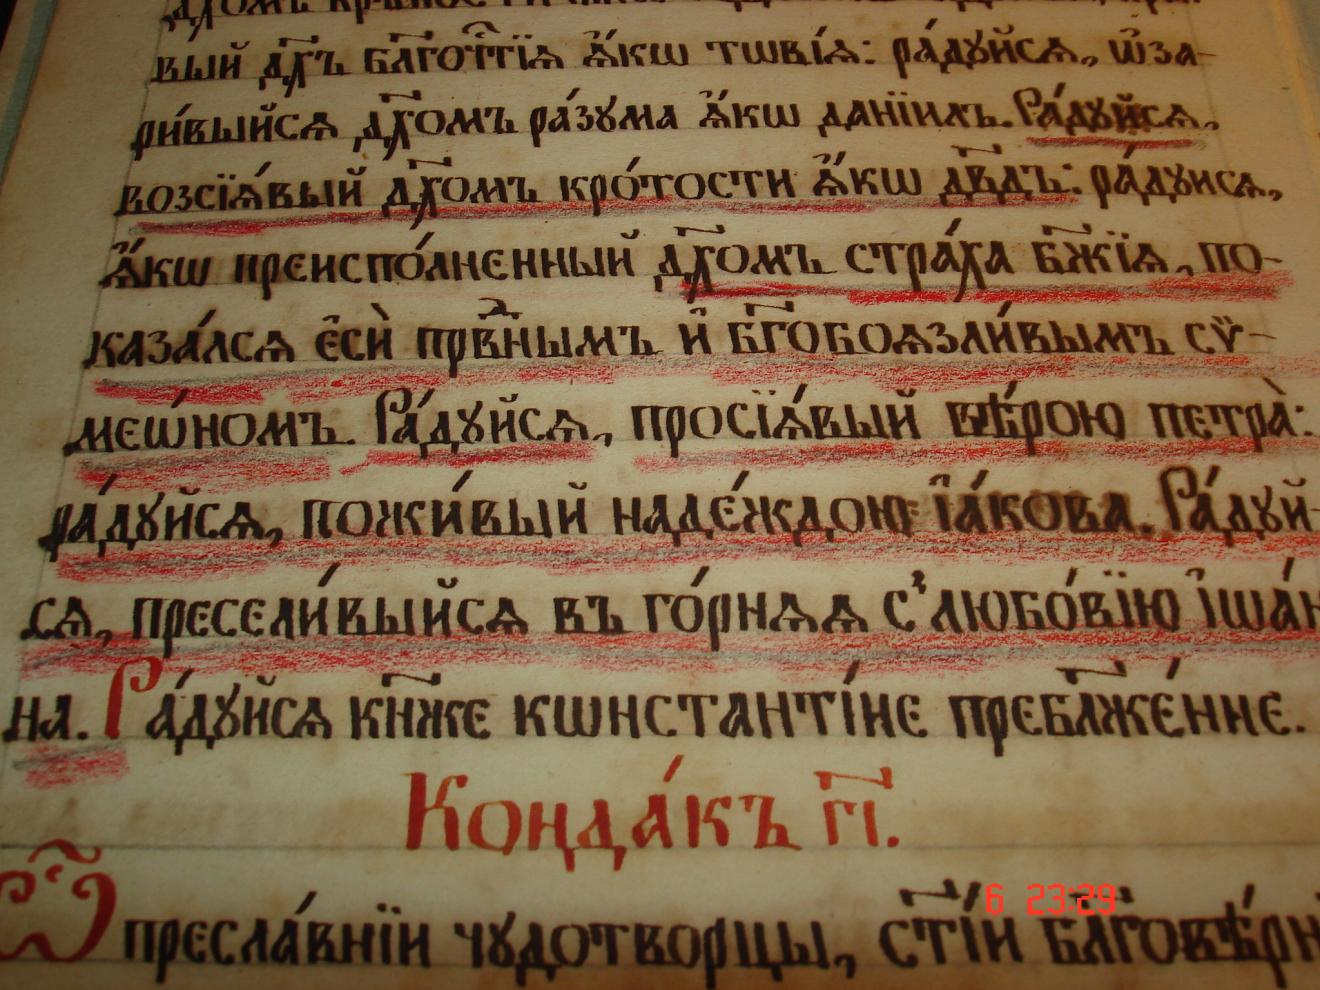 вый дх҃ъ бл҃гоч҇тїѧ ꙗ҆́кѡ тѡві́ѧ: ра́дꙋйсѧ, ѡ҆за-
ри́выйсѧ дх҃омъ ра́зꙋма ꙗ҆́кѡ данїилъ. Ра́дꙋйсѧ,
возсїѧ́вый дх҃омъ кро́тости ꙗ҆́кѡ дв҃дъ: ра́дꙋисѧ,
ꙗ҆́кѡ преиспо́лненный дх҃омъ стра́ха бж҃їѧ, по-
каза́лсѧ є҆сѝ првⷣнымъ и҆ бг҃обоѧзли́вымъ сѷ-
меѡ́номъ. Ра́дꙋйсѧ, просїѧ́вый вѣ́рою петра̀:
ра́дꙋйсѧ, пожи́вый наде́ждою і҆а́кова. Ра́дꙋй-
сѧ, пресели́выйсѧ въ го́рнѧѧ с̾ любо́вїю і҆ѡа́н
на. Ра́дꙋйсѧ кн҃же кѡнстанті́не пребл҃же́нне.
Конда́къ г҃і.
Ѽ пресла́внїи чꙋдотворцы, ст҃і́и бл҃говѣ́рн
6 23:29